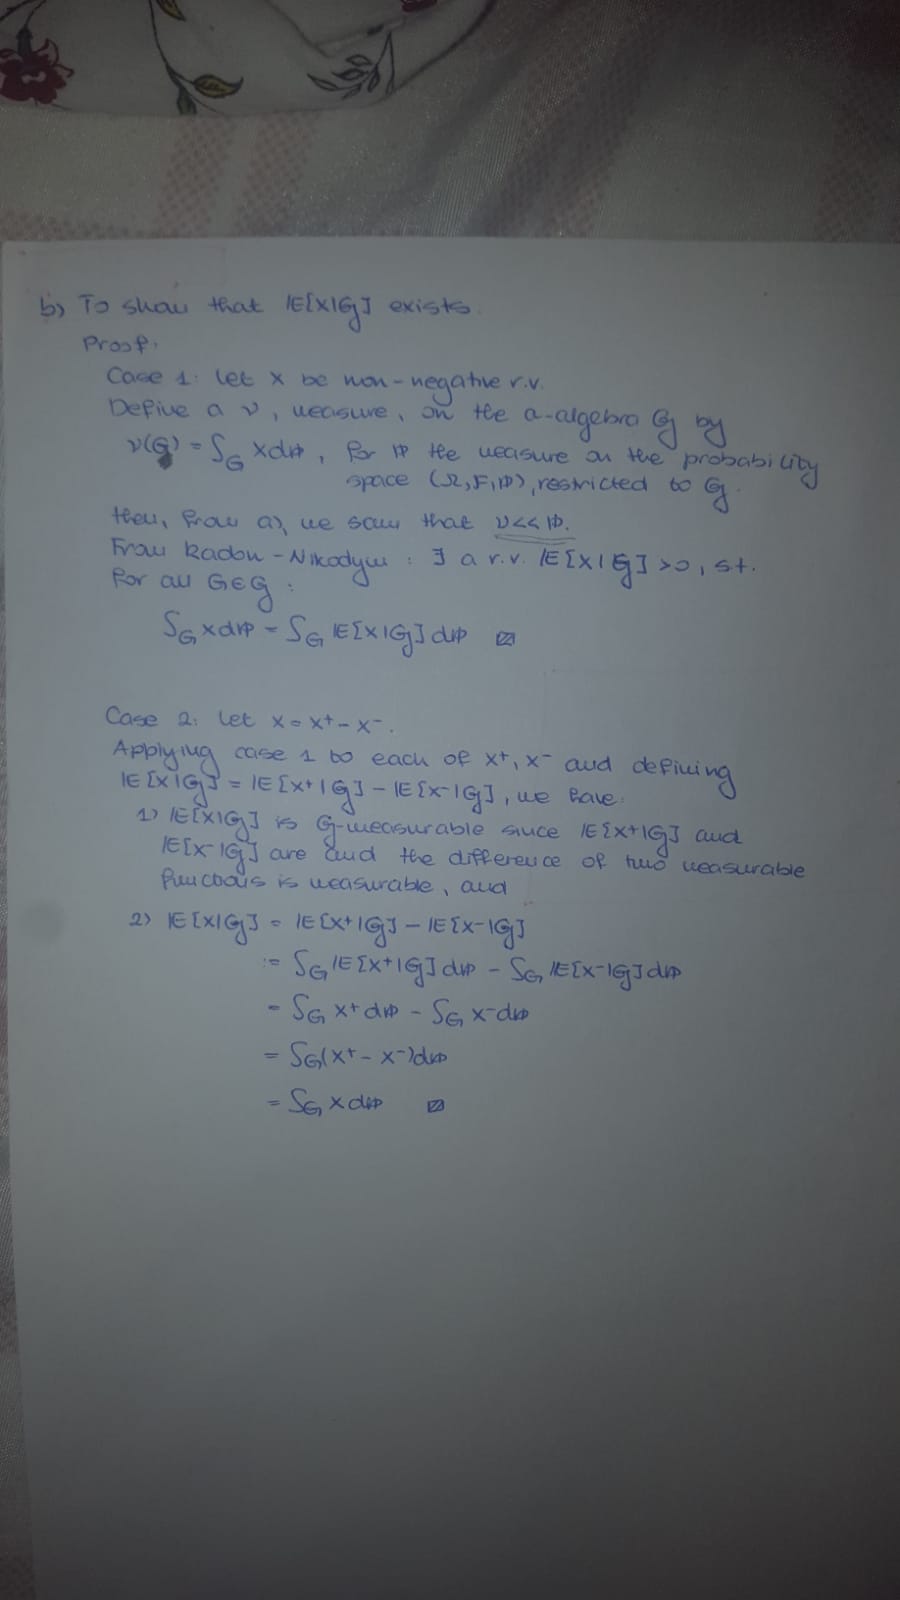 b) To show that 𝔼[X|𝒢] exists.
Proof:
Case 1: Let X be non-negative r.v.
Define a ν, measure, on the σ-algebra 𝒢 by
ν(G) = ∫_G X dℙ, for ℙ the measure on the probability
space (Ω, F, ℙ), restricted to 𝒢.
then, from a), we saw that ν<<ℙ.
From Radon-Nikodym: ∃ a r.v. 𝔼[X|𝒢] >0, st.
for all G∈𝒢:
∫_G X dℙ = ∫_G 𝔼[X|𝒢] dℙ ▨
Case 2: Let X = X⁺ - X⁻.
Applying case 1 to each of X⁺, X⁻ and defining
𝔼[X|𝒢] = 𝔼[X⁺|𝒢] - 𝔼[X⁻|𝒢], we have:
1) 𝔼[X|𝒢] is 𝒢-measurable since 𝔼[X⁺|𝒢] and
𝔼[X⁻|𝒢] are and the difference of two measurable
functions is measurable, and
2) 𝔼[X|𝒢] = 𝔼[X⁺|𝒢] - 𝔼[X⁻|𝒢]
:= ∫_G 𝔼[X⁺|𝒢] dℙ - ∫_G 𝔼[X⁻|𝒢] dℙ
= ∫_G X⁺ dℙ - ∫_G X⁻ dℙ
= ∫_G (X⁺ - X⁻) dℙ
= ∫_G X dℙ ▨